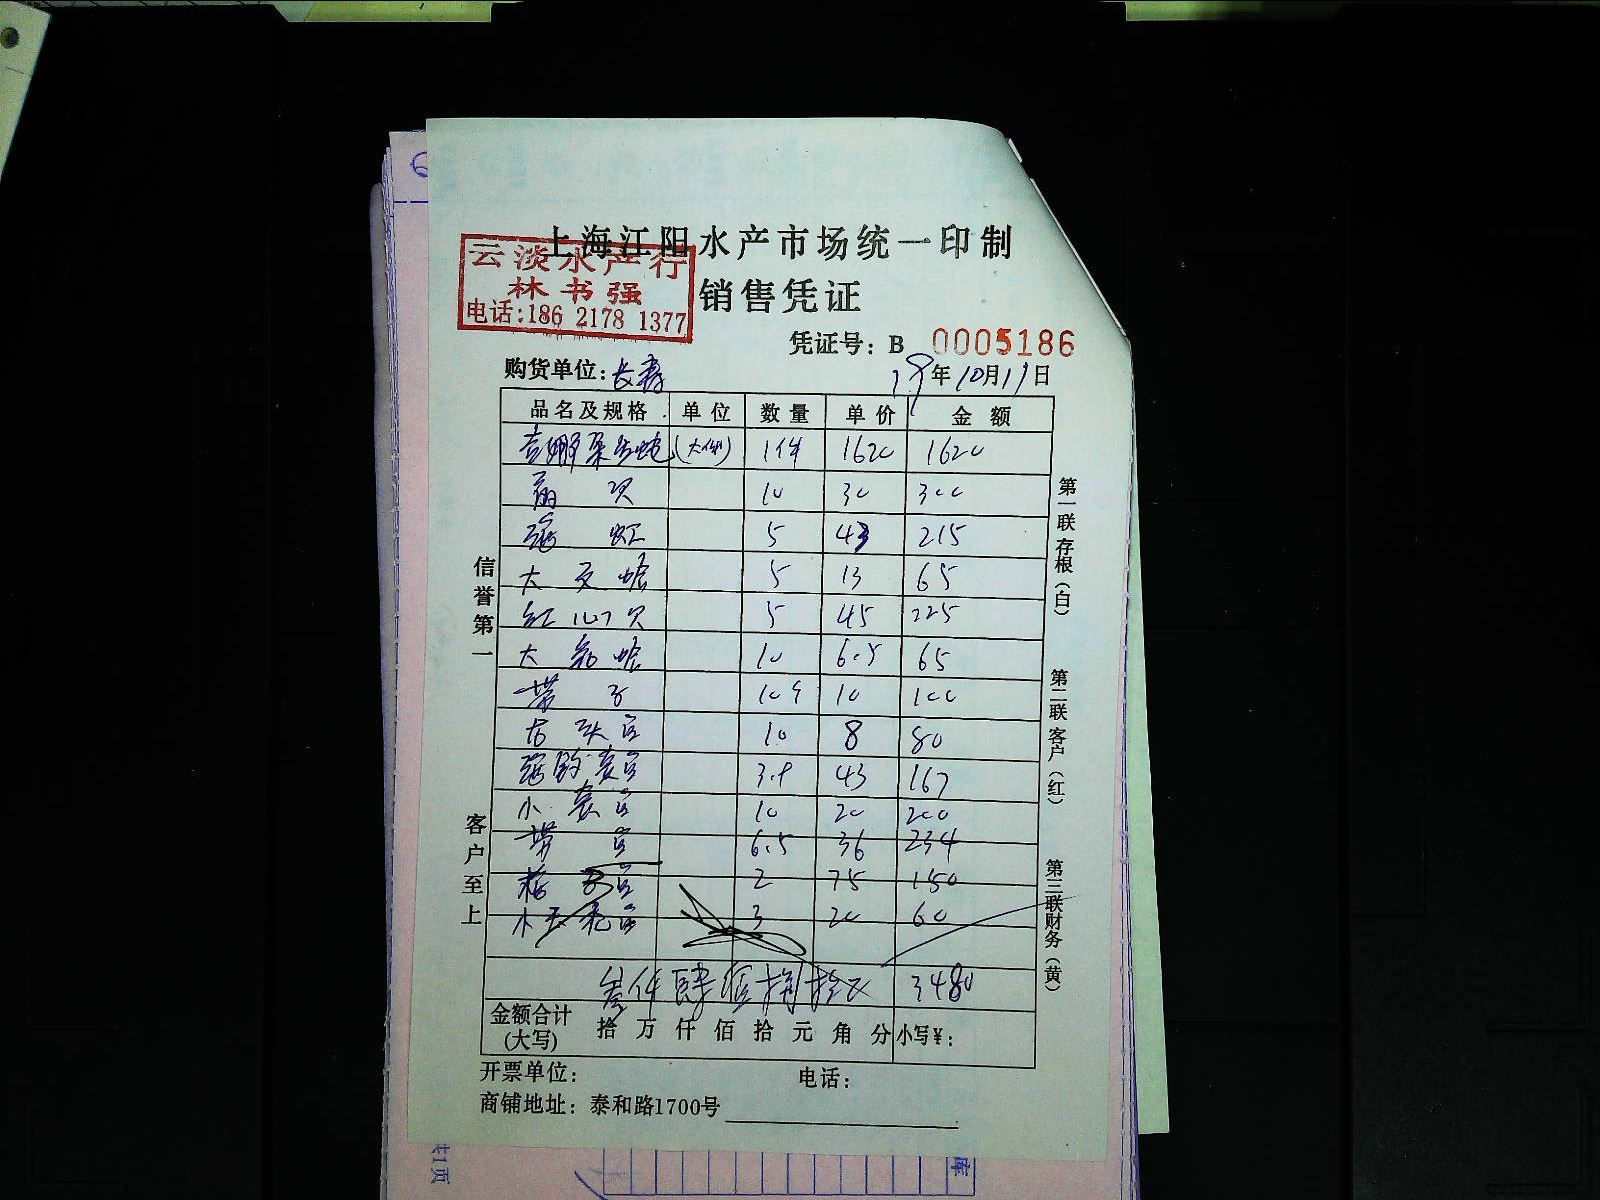 上海江阳水产市场统一印制
云淡水产行
林书强
电话:186 2178 1377
销售凭证
凭证号：B 0005186
购货单位：长寿 19年10月11日
品名及规格 单位 数量 单价 金额
(大件) 1件 1620 1620
贝 10 30 300
虾 5 43 215
大 蛤 5 13 65
红 贝 5 45 225
大 蛤 10 6.5 65
带子 10个 10 100
10 8 80
3.9 43 167
小 10 20 200
6.5 36 234
2 75 150
小 3 20 60
叁仟肆佰捌拾元 3480
金额合计(大写) 拾 万 仟 佰 拾 元 角 分 小写¥：
开票单位： 电话：
商铺地址：泰和路1700号
信誉第一
客户至上
第一联存根（白）
第二联客户（红）
第三联财务（黄）
共1页
库